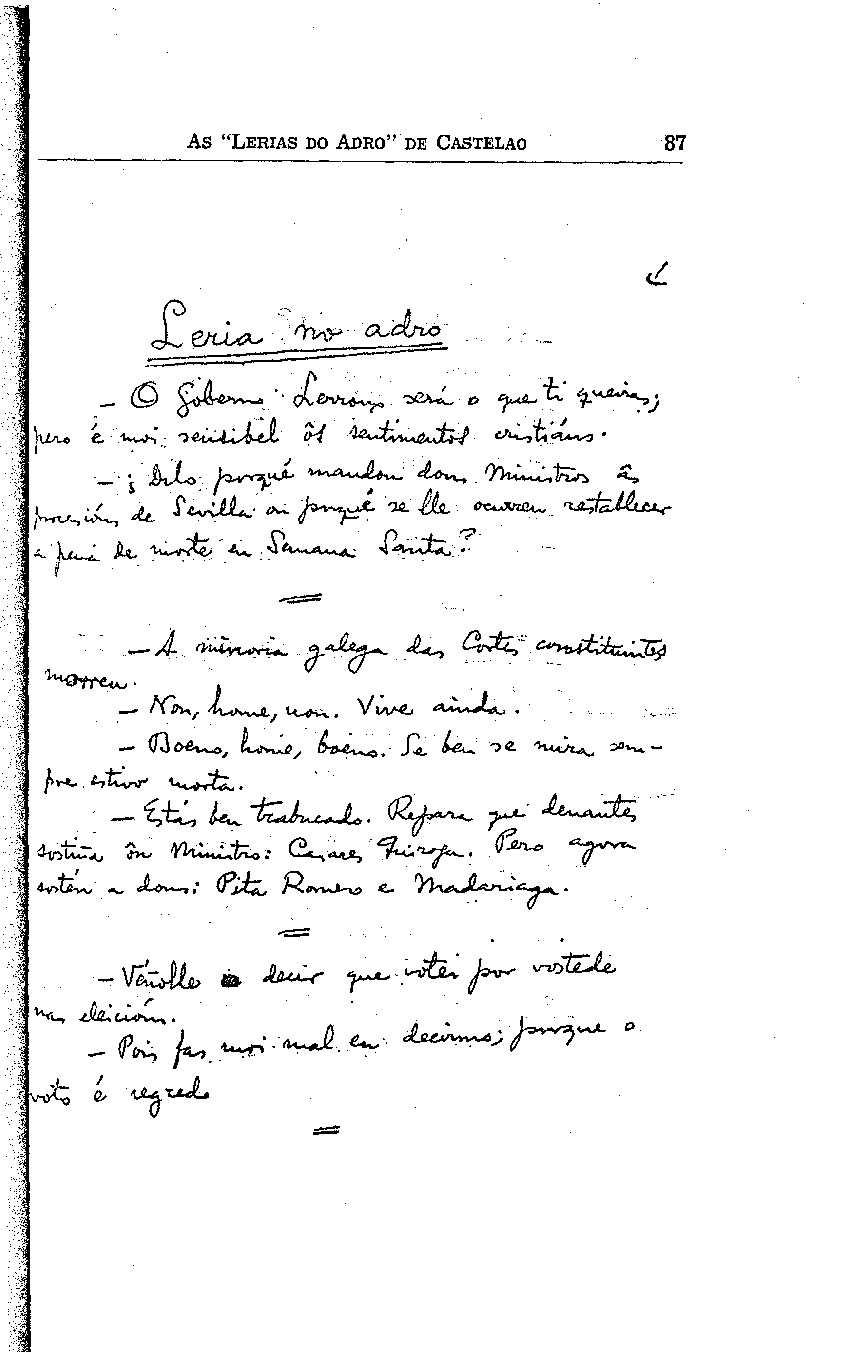 As "Lerias do Adro" de Castelao 87
Leria no adro
— O Goberno Lerroux será o que ti queiras;
pero é moi sensibel ôs sentimentos cristiáns.
— ¿Dilo porqué mandou dous Ministros âs
procesións de Sevilla ou porqué se lle ocurreu restablecer
a pena de morte en Semana Santa?
— A minoria galega das Cortes constituintes
morreu.
— Non, home, non. Vive ainda.
— Boeno, home, boeno. Se ben se mira sem-
pre estivo morta.
— Estás ben trabucado. Repara que denantes
sostiña ôn Ministro: Casares Quiroga. Pero agora
sostén a dous: Pita Romero e Madariaga.
— Véñolle a decir que votei por vostede
nas eleicións.
— Pois fas moi mal en decirmo; porque o
voto é segredo